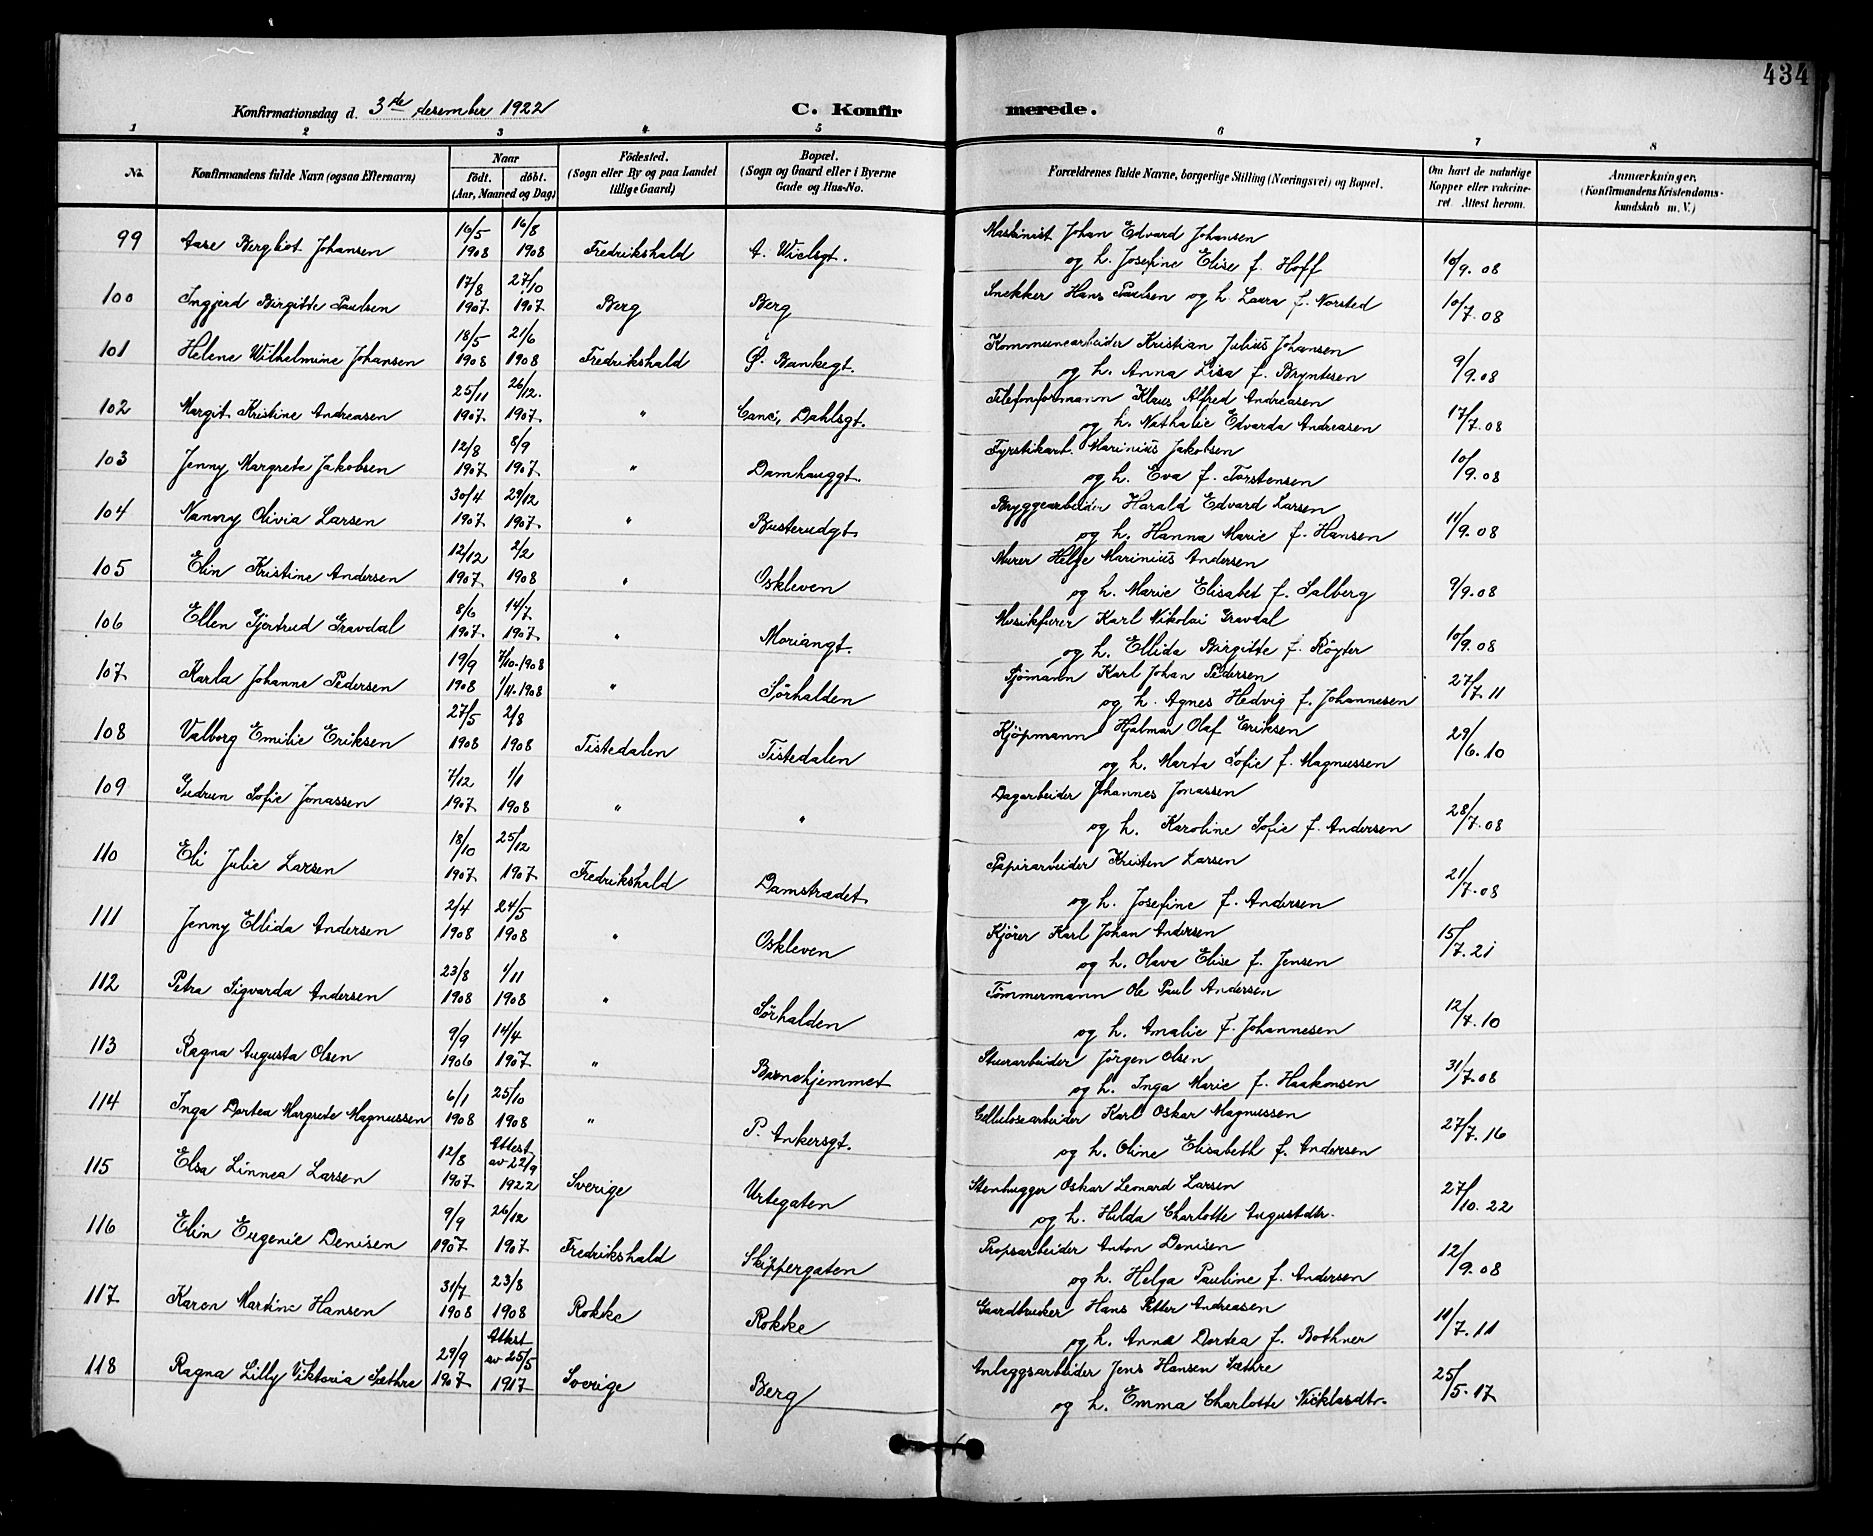 434
Konfirmationsdag d. 3die desember 1922 C. Konfirmerede.
1 2 3 4 5 6 7 8
No. Konfirmandens fulde Navn (ogsaa Efternavn) Naar født. døbt. (Aar, Maaned og Dag) Födested. (Sogn eller By og paa Landet tillige Gaard) Bopæl. (Sogn og Gaard eller i Byerne Gade og Hus-No. Forældrenes fulde Navne, borgerlige Stilling (Næringsvei) og Bopæl. Om havt de naturlige Kopper eller vakcineret. Attest herom. Anmærkninger, (Konfirmandens Kristendomskundskab m. V.)
99 Aase Bergliot Johansen 16/5 1908 16/8 1908 Fredrikshald A. Wielsgt. Maskinist Johan Edvard Johansen
og h. Josefine Elise f. Hoff 10/9. 08
100 Ingjerd Birgitte Paulsen 17/8 1907 27/10 1907 Berg Berg Snekker Hans Paulsen og h. Laura f. Norsted 10/7. 08
101 Helene Wilhelmine Johansen 18/5 1908 21/6 1908 Fredrikshald Ø. Bankegt. Kommunearbeider Kristian Julius Johansen
og h. Anna Lisa f. Bryntesen 9/9. 08
102 Margit Kristine Andreasen 25/11 1907 26/12. 1907 " Danc. Dahlsgt. Telefonformann Klaus Alfred Andreasen
og h. Nathalie Edvarda Andreasen 17/7. 08
103 Jenny Margrete Jakobsen 12/8 1907 8/9 1907 " Damhauggt. Fyrstikarb. Marinius Jakobsen
og h. Eva f. Torstensen 10/9. 08
104 Nanny Olivia Larsen 30/4 1907 29/12 1907 " Busterudgt. Bryggearbeider Harald Edvard Larsen
og h. Hanna Marie f. Hansen 11/9. 08
105 Elin Kristine Andersen 12/12 1907 2/2 1908 " Oskleven Murer Helge Marinius Andersen
og h. Marie Elisabet f. Salberg 9/9. 08
106 Ellen Gjertrud Gravdal 8/6 1907 14/7 1907 " Moriangt. Musikfurer Karl Nikolai Gravdal
og h. Ellida Birgitte f. Röyter 10/9. 08
107 Karla Johanne Pedersen 19/9 1908 7/10-1908 1/11-1908 " Sørhalden Sjømann Karl Johan Pedersen
og h. Agnes Hedvig f. Johannesen 27/7. 11
108 Valborg Emilie Eriksen 27/5 1908 2/8 1908 Tistedalen Tistedalen Kjöpmann Hjalmar Olaf Eriksen
og h. Marta Sofie f. Magnussen 29/6. 10
109 Gudrun Sofie Jonassen 7/12 1907 1/1 1908 " " Dagarbeider Johannes Jonassen
og h. Karoline Sofie f. Andersen 28/7. 08
110 Eli Julie Larsen 18/10 1907 25/12 1907 Fredrikshald Damstrædet Papirarbeider Kristen Larsen
og h. Josefine f. Andersen 21/7. 08
111 Jenny Ellida Andersen 2/4 1908 24/5 1908 " Oskleven Kjörer Karl Johan Andersen
og h. Olava Elise f. Jensen 15/7. 21
112 Petra Sigvarda Andersen 23/8 1908 1/11 1908 " Sørhalden Tömmermann Ole Paul Andersen
og h. Amalie f. Johannesen 12/7. 10
113 Ragna Augusta Olsen 9/9 1906 14/4 1907 " Barnehjemmet Stuerarbeider Jörgen Olsen
og h. Inga Marie f. Haakonsen 31/7. 08
114 Inga Dortea Margrete Magnussen 6/1 1908 25/10 1908 " P. Ankersgt. Cellulosearbeider Karl Oskar Magnussen
og h. Oline Elisabeth f. Andersen 27/7. 16
115 Elsa Linnea Larsen 12/8 1907 Attest av 22/9 1922 Sverige Urtegaten Stenhugger Oskar Leonard Larsen
og h. Hilda Charlotte Augustdtr. 27/10. 22
116 Elin Eugenie Denisen 9/9 1907 26/12 1907 Fredrikshald Skippergaten Propsarbeider Anton Denisen
og h. Helga Pauline f. Andersen 12/9. 08
117 Karen Martine Hansen 31/7 1908 23/8 1908 Rokke Rokke Gaardbruker Hans Petter Andreasen
og h. Anna Dortea f. Bothner 11/7. 11
118 Ragna Lilly Viktoria Sæthre 29/9 1907 Attest av 25/5 1917 Sverige Berg Anlæggsarbeider Jens Hansen Sæthre
og h. Emma Charlotte Nicklasdtr. 25/5. 17